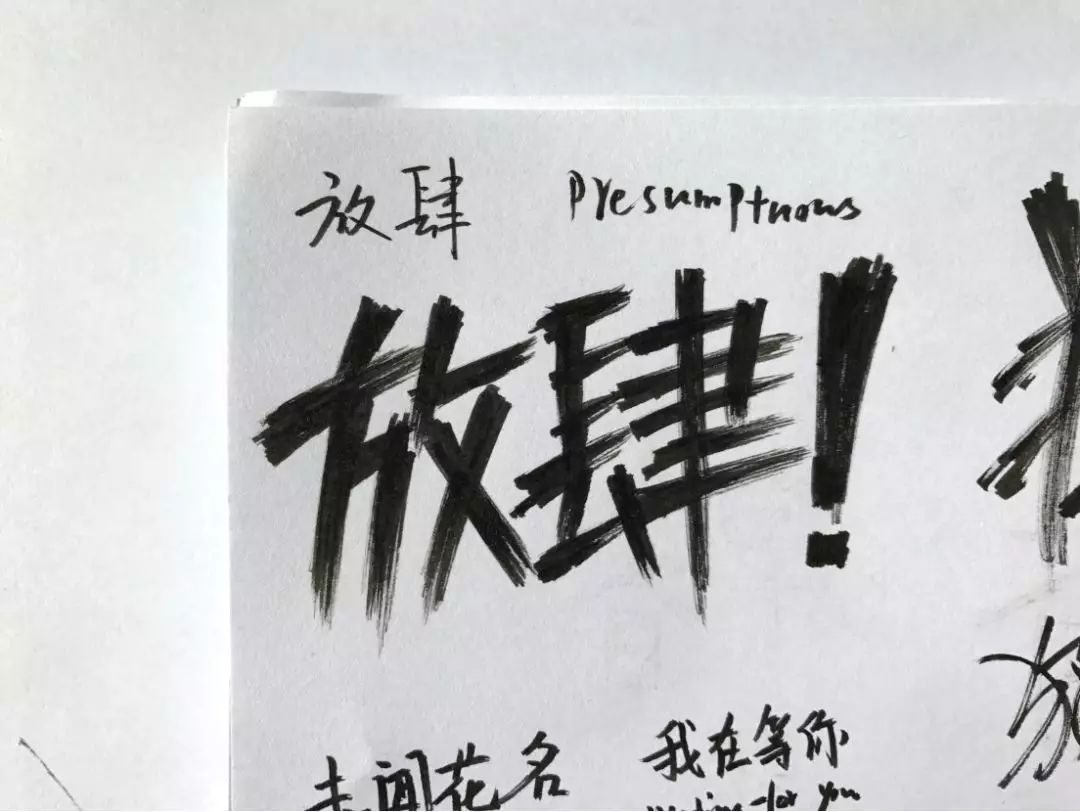 放肆 Presumptuous
放肆!
未闻花名
我在等你
waiting for you